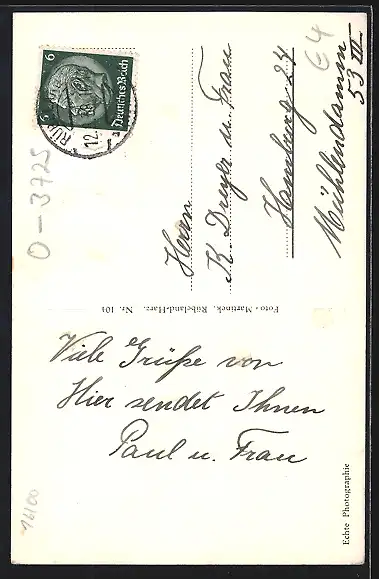 Viele Grüße von
Hier sendet Ihnen
Paul u. Frau
Herrn
K. Dreyer u. Frau
Hamburg 24
Mühlendamm
53 III
Foto-Martinek, Rübeland-Harz. Nr. 101
Echte Photographie
6 6
Deutsches Reich
12.
O-3725
E4
16100